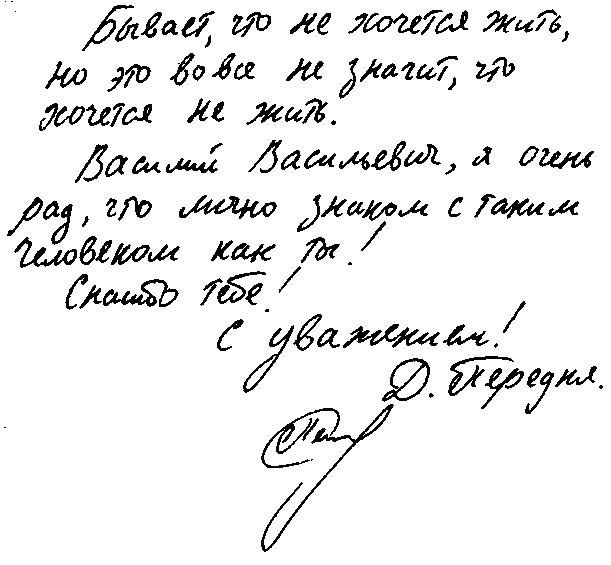 Бывает, что не хочется жить,
но это вовсе не значит, что
хочется не жить.
Василий Васильевич, я очень
рад, что лично знаком с таким
человеком как ты!
Спасибо тебе!
С уважением!
Д. Передня.